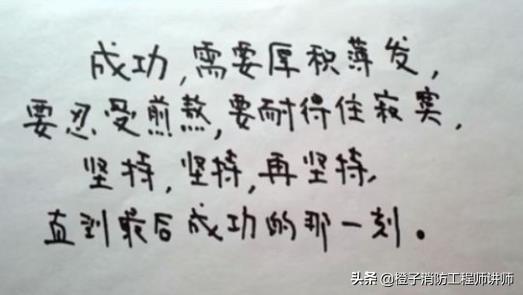 成功,需要厚积薄发,
要忍受煎熬,要耐得住寂寞,
坚持,坚持,再坚持,
直到最后成功的那一刻。
头条 @橙子消防工程师讲师